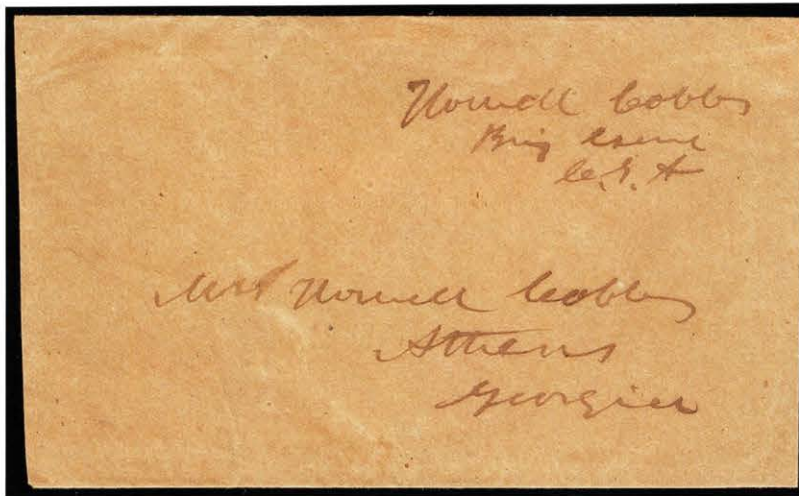 Howell Cobb
Brig Genl
C.S.A
Mrs Howell Cobb
Athens
Georgia